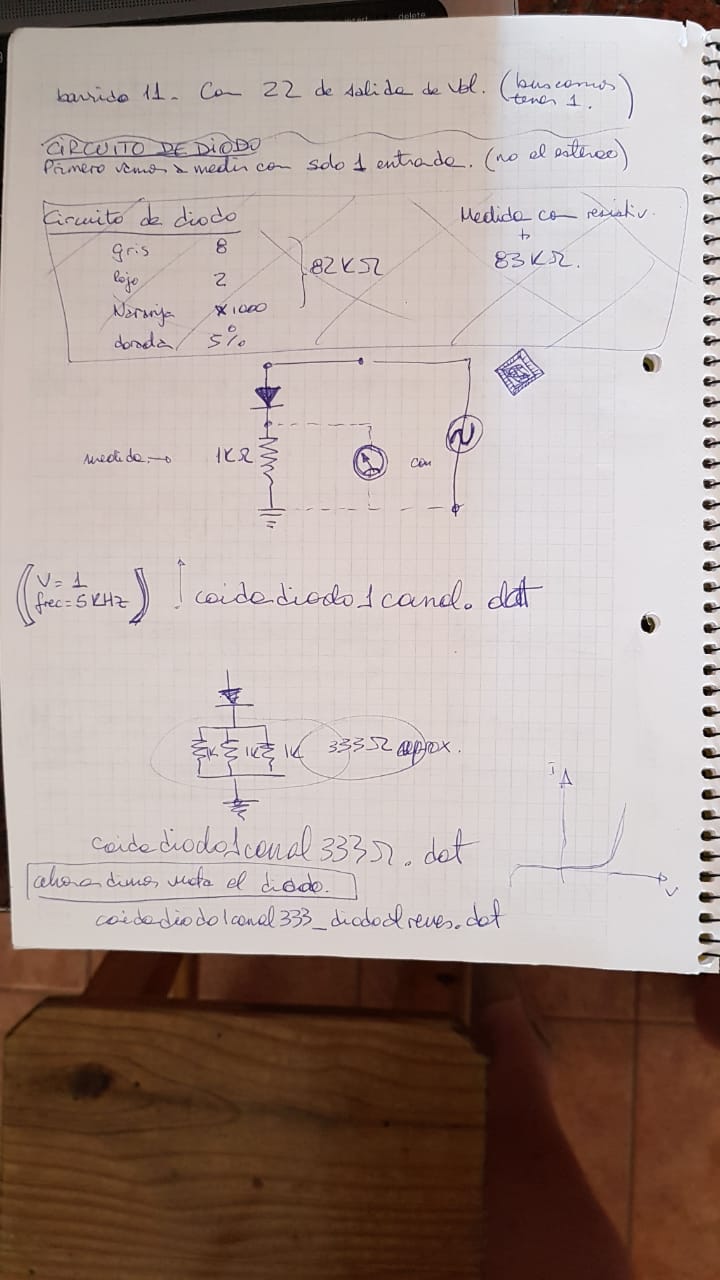 delete
barrido 11. Con 22 de salida de vol. (buscamos
tener 1.)
CIRCUITO DE DIODO
Primero vamos a medir con solo 1 entrada. (no el estéreo)
Circuito de diodo
Medida con resistiv.
gris 8
Rojo 2
82KΩ
83KΩ.
Naranja x1000
dorada 5%
medida →
1KΩ
con
V= 1
frec= 5KHZ
caidadiodo1canal.dat
1K 1K 1K 333Ω aprox.
i
V
caidadiodo1canal333Ω.dat
ahora dimos vuelta el diodo.
caidadiodo1canal333_diodoalreves.dat